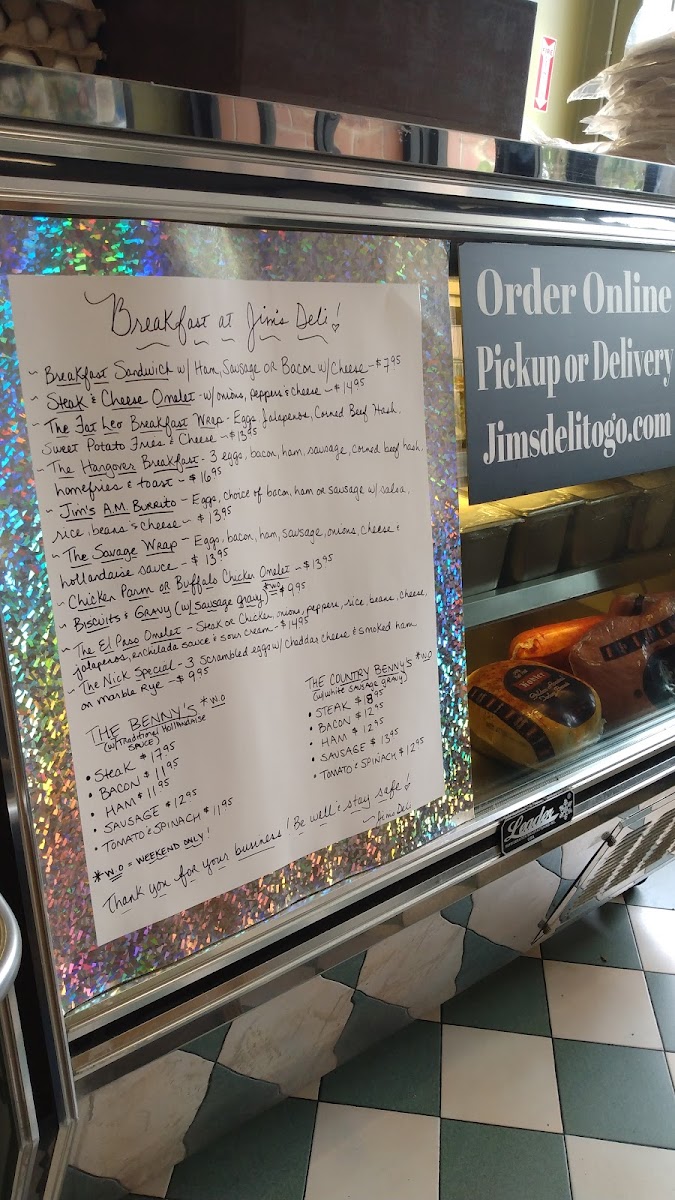 Breakfast at Jim's Deli!
~ Breakfast Sandwich w/ Ham, Sausage OR Bacon w/Cheese - $7.95
~ Steak & Cheese Omelet - w/onions, peppers & cheese ~ $14.95
~ The Fat Leo Breakfast Wrap - Eggs, Jalapenos, Corned Beef Hash,
Sweet Potato Fries & Cheese ~ $13.95
~ The Hangover Breakfast - 3 eggs, bacon, ham, sausage, corned beef hash,
homefries & toast ~ $16.95
~ Jim's A.M. Burrito - Eggs, choice of bacon, ham or sausage w/ salsa,
rice, beans & cheese ~ $13.95
~ The Savage Wrap - Eggs, bacon, ham, sausage, onions, cheese &
hollandaise sauce - $13.95
~ Chicken Parm OR Buffalo Chicken Omelet - $13.95
~ Biscuits & Gravy (w/ sausage gravy) *W.O $9.95
~ The El Paso Omelet - Steak or Chicken, onions, peppers, rice, beans, cheese,
jalapenos, enchilada sauce & sour cream - $14.95
~ The Nick Special - 3 Scrambled eggs w/ cheddar cheese & smoked ham
on marble Rye - $9.95
THE BENNY'S *W.O
(w/ Traditional Hollandaise
SAUCE)
• Steak $17.95
• BACON $11.95
• HAM $11.95
• SAUSAGE $12.95
• TOMATO & SPINACH $11.95
THE COUNTRY BENNY'S *W.O
(w/WHITE SAUSAGE GRAVY)
• STEAK $18.95
• BACON $12.95
• HAM $12.95
• SAUSAGE $13.95
• TOMATO & SPINACH $12.95
*W.O = WEEKEND ONLY!
Thank you for your business! Be well & stay safe!
~ Jim's Deli
Order Online
Pickup or Delivery
Jimsdelitogo.com
Leader